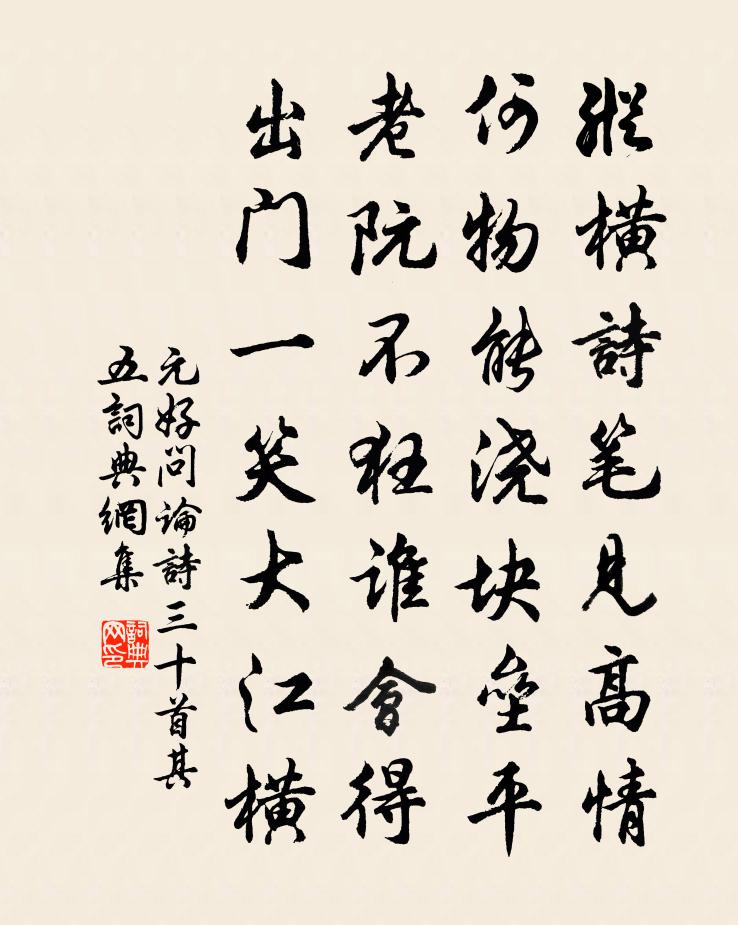 縱橫詩笔見高情
何物能浇块壘平
老阮不狂谁會得
出门一笑大江橫
元好问論詩三十首其
五詞典網集
詞典網印